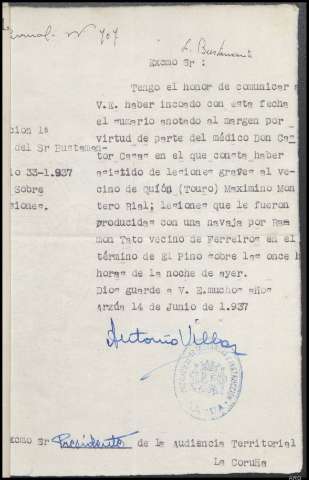 Nº 707
L. Bustamante
Excmo Sr :
Tengo el honor de comunicar a
V.E. haber incoado con esta fecha
el sumario anotado al margen por
virtud de parte del médico Don Cas
tor Casas en el que consta haber
asistido de lesiones graves al ve-
cino de Quión (Touro) Maximino Mon
tero Rial; lesiones que le fueron
producidas con una navaja por Ra
mon Tato vecino de Ferreiros en el
término de El Pino sobre las once h
horas de la noche de ayer.
Dios guarde a V. E.muchos años
Arzúa 14 de Junio de 1.937
cion 1ª
del Sr Bustaman-
io 33-1.937
Sobre
siones.
Antonio Villar
xcmo Sr Presidente de la Audiencia Territorial
La Coruña